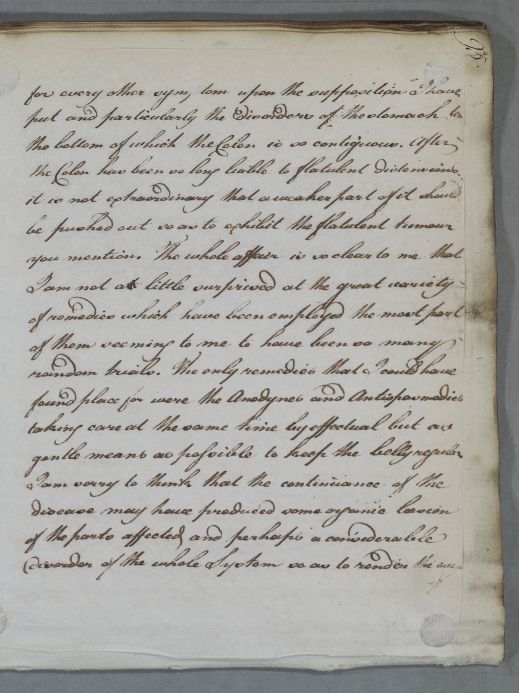 for every other symptom upon the supposition I have
put and particularly the disorders of the stomach to
the bottom of which the Colon is so contiguous. After
the Colon has been so long liable to flatulent distensions
it is not extraordinary that a weaker part of it should
be pushed out so as to exhibit the flatulent tumour
you mention. The whole affair is so clear to me that
I am not a little surprised at the great variety
of remedies which have been employed the most part
of them seeming to me to have been so many
random trials. The only remedies that I could have
found place for were the Anodynes and Antispasmodics
taking care at the same time by effectual but as
gentle means as possible to keep the belly regular
I am sorry to think that the continuance of the
disease may have produced some organic lesion
of the parts affected and perhaps a considerable
disorder of the whole System so as to render the